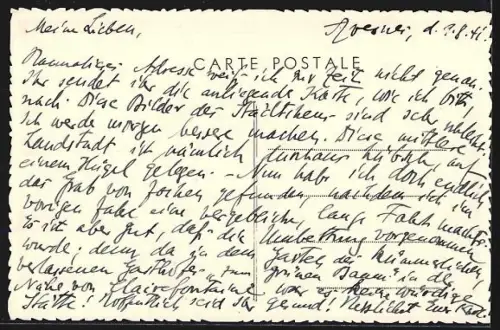 Meine Lieben,
d. 9.8.41.
CARTE POSTALE
Adresse weiß ich zur Zeit nicht genau.
Ihr sendet ihr die anliegende Karte, wie ich bitte,
nach. Diese Bilder des Städtchens sind sehr schlecht.
Ich werde morgen bessere machen. Diese mittlere
Landstadt ist nämlich hübsch auf
einem Hügel gelegen. - Nun habe ich doch endlich
das Grab von Jochen gefunden, nachdem ich im
vorigen Jahr eine vergebliche, lange Fahrt machte.
Es ist aber gut, daß die Umbettung vorgenommen
wurde; denn da in dem Garten des kümmerlichen,
verlassenen Gasthofes "zum grünen Baum" in der
Nähe von Clairefontaine war es keine würdige
Stätte! Hoffentlich seid Ihr gesund! Herzlichst Euer